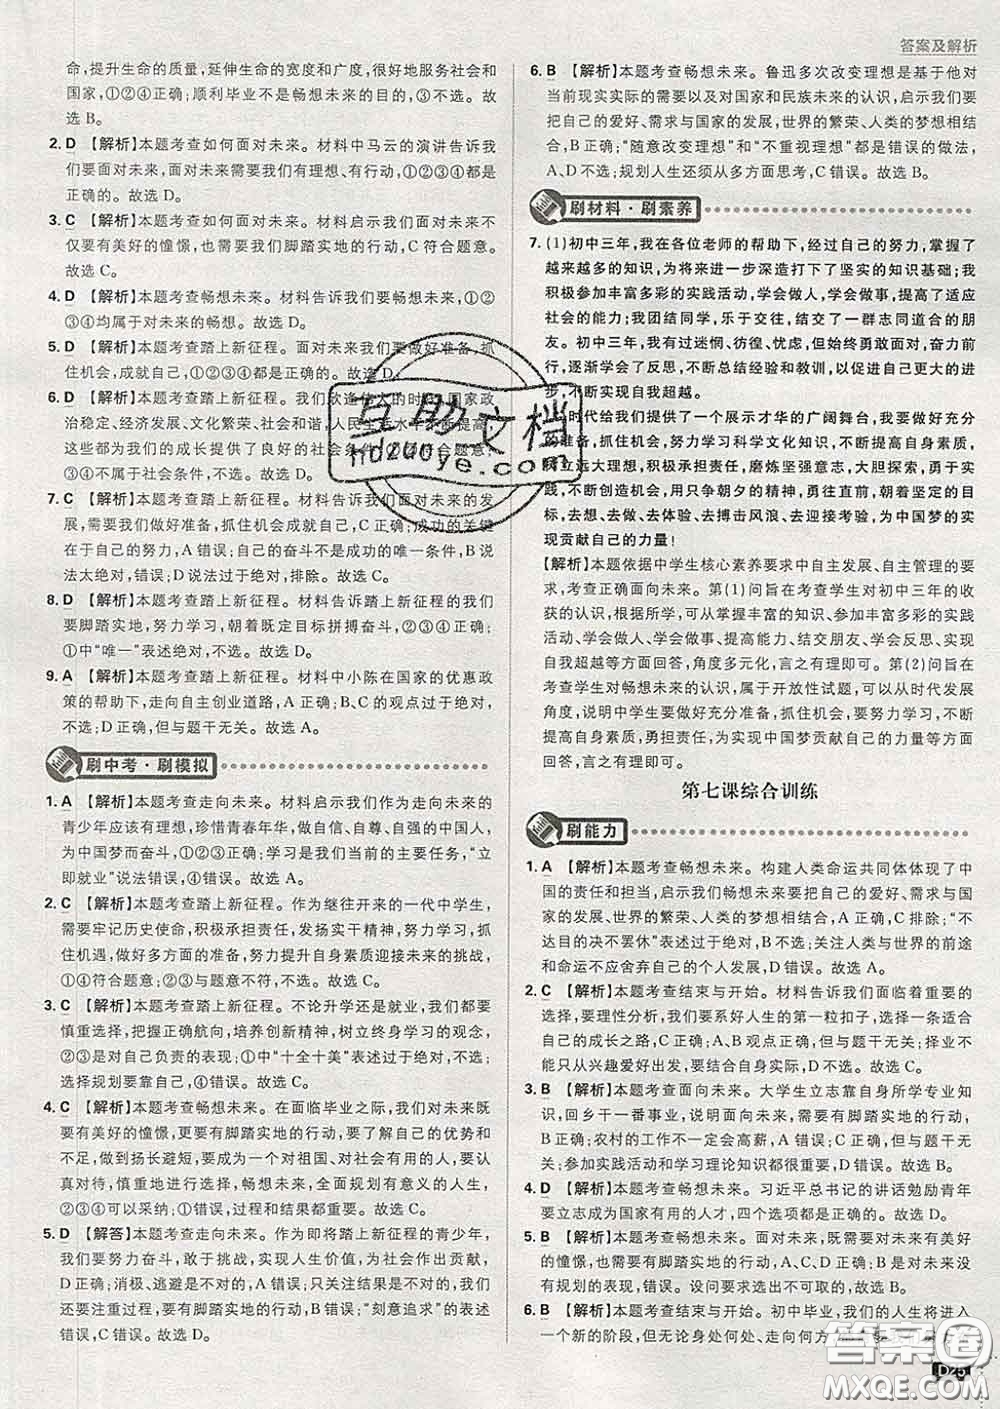 答案及解析
命,提升生命的质量,延伸生命的宽度和广度,很好地服务社会和
国家,①②④正确;顺利毕业不是畅想未来的目的,③不选。故
选 B。
2. D 【解析】本题考查如何面对未来。材料中马云的演讲告诉我
们要面对未来,面对未来需要有理想、有行动,①②③④都是
正确的。故选 D。
3. C 【解析】本题考查如何面对未来。材料启示我们面对未来不
仅要有美好的憧憬,也要有脚踏实地的行动,C 符合题意。
故选 C。
4. D 【解析】本题考查畅想未来。材料告诉我们要畅想未来,①②
③④均属于对未来的畅想。故选 D。
5. D 【解析】本题考查踏上新征程。面对未来我们要做好准备,抓
住机会,成就自己,①②③④正确。故选 D。
6. D 【解析】本题考查踏上新征程。我们欣逢伟大的时代,国家政
治稳定、经济发展、文化繁荣、社会和谐,人民生活水平不断提高,
这些都为我们的成长提供了良好的社会条件,①②④符合题意;
③不属于社会条件,不选。故选 D。
7. C 【解析】本题考查踏上新征程。材料告诉我们面对未来的发
展,需要我们做好准备,抓住机会成就自己,C 正确;成功的关键
在于自己的努力,A 错误;B 不是成功的唯一条件,B 说
法太绝对,错误;D 说法过于绝对,排除。故选 C。
8. D 【解析】本题考查踏上新征程。材料告诉踏上新征程的我们
要脚踏实地,努力学习,朝着既定目标拼搏奋斗,②③④正确;
①中“唯一”表述绝对,不选。故选 D。
9. A 【解析】本题考查踏上新征程。材料中小陈在国家的优惠政
策的帮助下,走向自主创业道路,A 正确;B、C 的观点过于绝对,
不选;D 正确,但与题干无关。故选 A。
刷中考·刷模拟
1. A 【解析】本题考查走向未来。材料启示我们作为走向未来的
青少年应该有理想,珍惜青春年华,做自信、自尊、自强的中国人,
为中国梦而奋斗,①②③正确;学习是我们当前的主要任务,“立
即就业”说法错误,④错误。故选 A。
2. C 【解析】本题考查踏上新征程。作为继往开来的一代中学生,
需要牢记历史使命,积极承担责任,发扬实干精神,努力学习,抓
住机遇,做好多方面的准备,努力提升自身素质迎接未来的挑战,
①④符合题意;②③与题意不符,不选。故选 C。
3. C 【解析】本题考查踏上新征程。不论升学还是就业,我们都要
慎重选择,把握正确航向,培养创新精神,树立终身学习的观念,
②③是对自己负责的表现;①中“十全十美”表述过于绝对,不选;
选择规避困难就是逃避困难,④错误。故选 C。
4. C 【解析】本题考查畅想未来。在面临毕业之际,我们对未来既
要有美好的憧憬,更要有脚踏实地的行动,要了解自己的优势和
不足,做到扬长避短,要做一个对祖国、对社会有用的人,要认
真对待,慎重地进行选择,描绘我们充满意义的人生,
②③④可以采纳;①错误,过度紧张和焦虑不可取。故选 C。
5. D 【解答】本题考查走向未来。作为即将踏上新征程的青少年,
我们要努力奋斗,敢于挑战,实现人生价值,为社会作出贡献,
D 正确;消极、逃避是不对的,A 错误;只关注结果是不对的,我们
还要注重过程,要有脚踏实地的行动,B 错误;“刻意追求”的表述
错误,C 错误。故选 D。
6. B 【解析】本题考查畅想未来。鲁迅多次改变理想是基于他对
当前现实实际的需要以及对国家和民族未来的认识,启示我们要
把自己的爱好、需求与国家的发展,世界的繁荣、人类的梦想相结
合,B 正确;“随意改变理想”和“不重视理想”都是错误的做法,
A、D 不选;规划人生还须从多方面思考,C 错误。故选 B。
刷材料·刷素养
7. (1)初中三年,我在各位老师的帮助下,经过自己的努力,掌握了
越来越多的知识,为将来进一步深造打下了坚实的知识基础;我
积极参加丰富多彩的实践活动,学会做人,学会做事,提高了适应
社会的能力;我团结同学,乐于交往,结交了一群志同道合的朋
友。初中三年,我有过迷惘、彷徨、忧虑,但始终顽强拼搏,奋力前
行,逐渐学会了反思,不断总结经验和教训,以促进自己更大的进
步,不断实现自我超越。
时代给我们提供了一个展示才华的广阔舞台,我要做好充分
的准备,抓住机会,努力学习科学文化知识,不断提高自身素质,
树立远大理想,积极承担责任,磨炼坚强意志,大胆探索,勇于实
践,不断创造机会,用只争朝夕的精神,勇往直前,朝着坚定的目
标,去想、去做、去体验、去搏击风浪、去迎接考验,为中国梦的实
现贡献自己的力量!
【解析】本题依据中学生核心素养要求中自主发展、自主管理的要
求,考查正确面向未来。第(1)问旨在考查学生对初中三年的收
获的认识,根据所学,可以从掌握丰富的知识、参加丰富多彩的实践
活动、学会做人、学会做事、提高能力、结交朋友、学会反思、实现
自我超越等方面回答,角度多元化,言之有理即可。第(2)问旨在
考查学生对畅想未来的认识,属于开放性试题,可以从时代发展
角度,说明中学生要做好充分准备,抓住机会,要努力学习,不断
提高自身素质,为实现中国梦贡献自己的力量等方面回答,
言之有理即可。
第七课综合训练
刷能力
1. A 【解析】本题考查畅想未来。构建人类命运共同体体现了中
国的责任和担当,启示我们畅想未来要把自己的爱好、需求与国
家的发展、世界的繁荣、人类的梦想相结合,A 正确,C 排除;“不
达目的决不罢休”表述过于绝对,B 不选;关注人类与世界的前途
和命运不应舍弃自己的个人发展,D 错误。故选 A。
2. C 【解析】本题考查结束与开始。材料告诉我们面临着重要的
选择,要理性分析,我们要系好人生的第一粒扣子,选择一条适合
自己的成长之路,C 正确;A、B 正确,但与题干无关;择业不
能只从兴趣爱好出发,要结合自身实际,D 不选。故选 C。
3. B 【解析】本题考查面向未来。大学生立志靠自身所学专业知
识,回乡干一番事业,说明面向未来,需要有脚踏实地的行动,
B 正确;农村的工作不一定会高薪,A 错误;C 正确,但与题干无
关;参加实践活动和学习理论知识都很重要,D 错误。故选 B。
4. D 【解析】本题考查畅想未来。习近平总书记的讲话勉励青年
要立志成为国家有用的人才,四个选项都是正确的。故选 D。
5. B 【解析】本题考查畅想未来。面对未来,既需要有美好
的憧憬,也需要有脚踏实地的行动,A、C、D 正确;B 是对未来没
有规划的表现,错误。设问要求选出不可取的,故选 B。
6. B 【解析】本题考查结束与开始。初中毕业,我们的人生将进入
一个新的阶段,但无论身处何处、走向何方
D25
互助文档
hdzuoye.com
答案圈
MXQE.COM